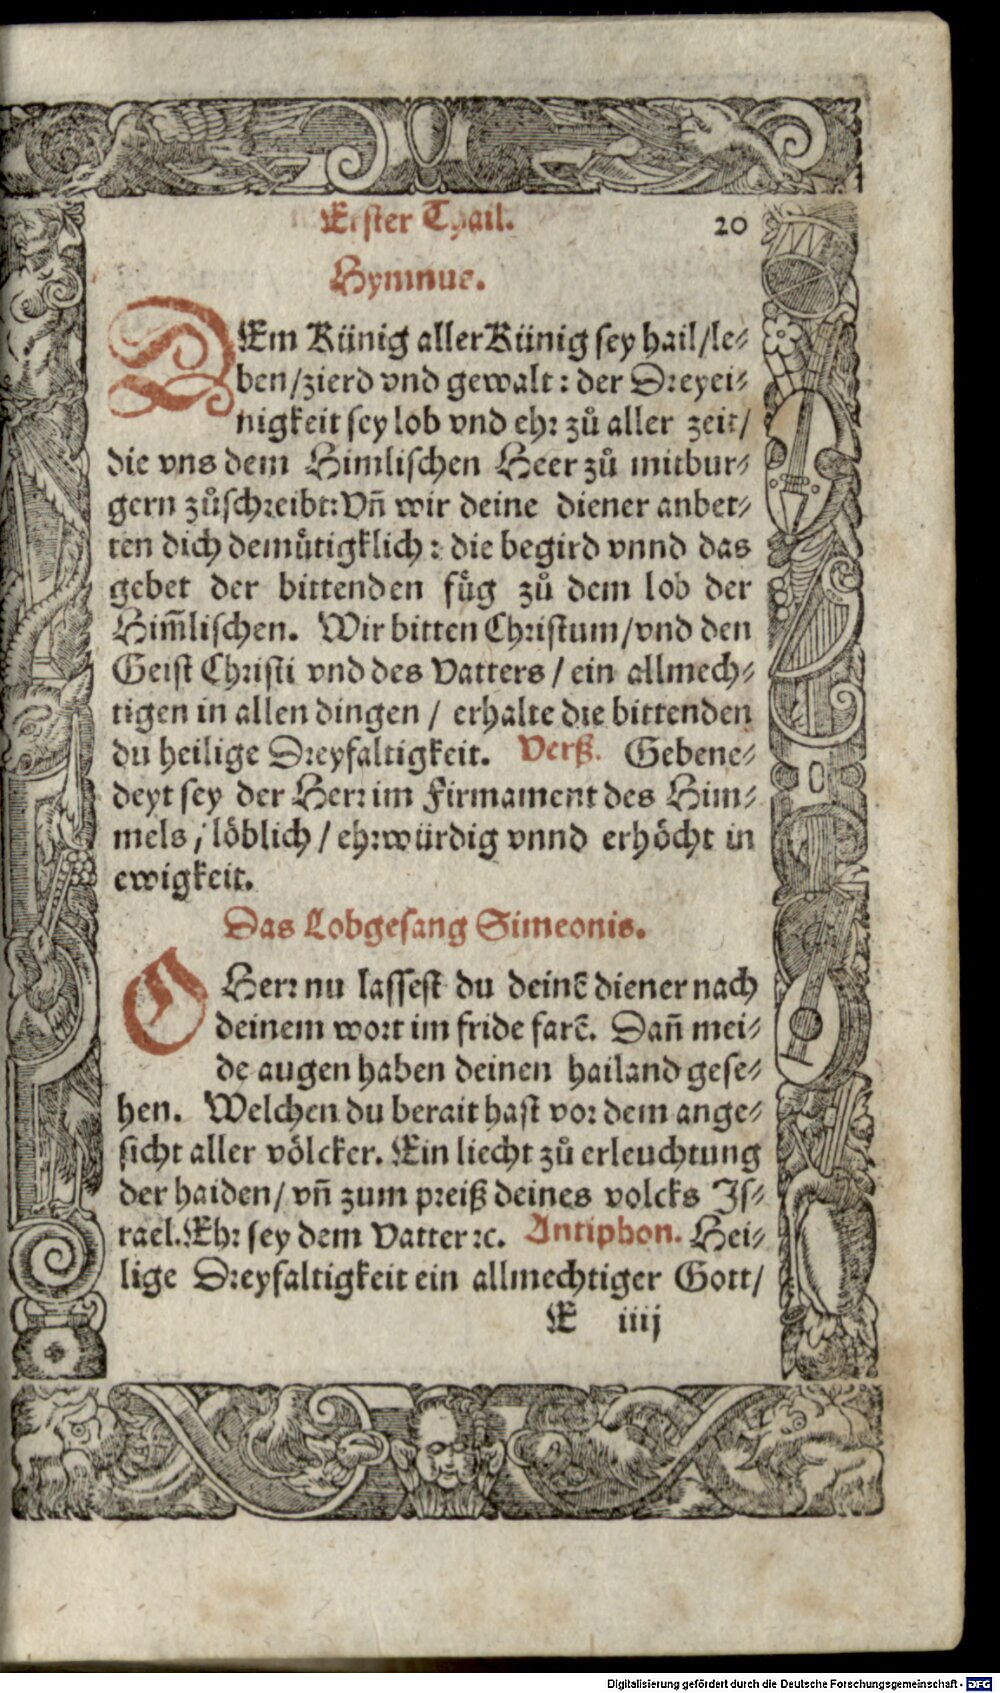 Erster Thail. 20
Hymnus.
DEm Künig aller Künig sey hail/le⸗
ben/zierd vnd gewalt: der Dreyei⸗
nigkeit sey lob vnd ehr zů aller zeit/
die vns dem Himlischen Heer zů mitbur⸗
gern zůschreibt: Vñ wir deine diener anbet⸗
ten dich demütigklich: die begird vnnd das
gebet der bittenden füg zů dem lob der
Him̃lischen. Wir bitten Christum/vnd den
Geist Christi vnd des Vatters/ein allmech⸗
tigen in allen dingen/erhalte die bittenden
du heilige Dreyfaltigkeit. Verß. Gebene⸗
deyt sey der Herr im Firmament des Him⸗
mels/löblich/ehrwürdig vnnd erhöcht in
ewigkeit.
Das Lobgesang Simeonis.
O Herr nu lassest du deinẽ diener nach
deinem wort im fride farẽ. Dañ mei⸗
de augen haben deinen hailand gese⸗
hen. Welchen du berait hast vor dem ange⸗
sicht aller völcker. Ein liecht zů erleuchtung
der haiden/vñ zum preiß deines volcks Js⸗
rael. Ehr sey dem Vatter ꝛc. Antiphon. Hei⸗
lige Dreyfaltigkeit ein allmechtiger Gott/
E iiij
Digitalisierung gefördert durch die Deutsche Forschungsgemeinschaft - DFG